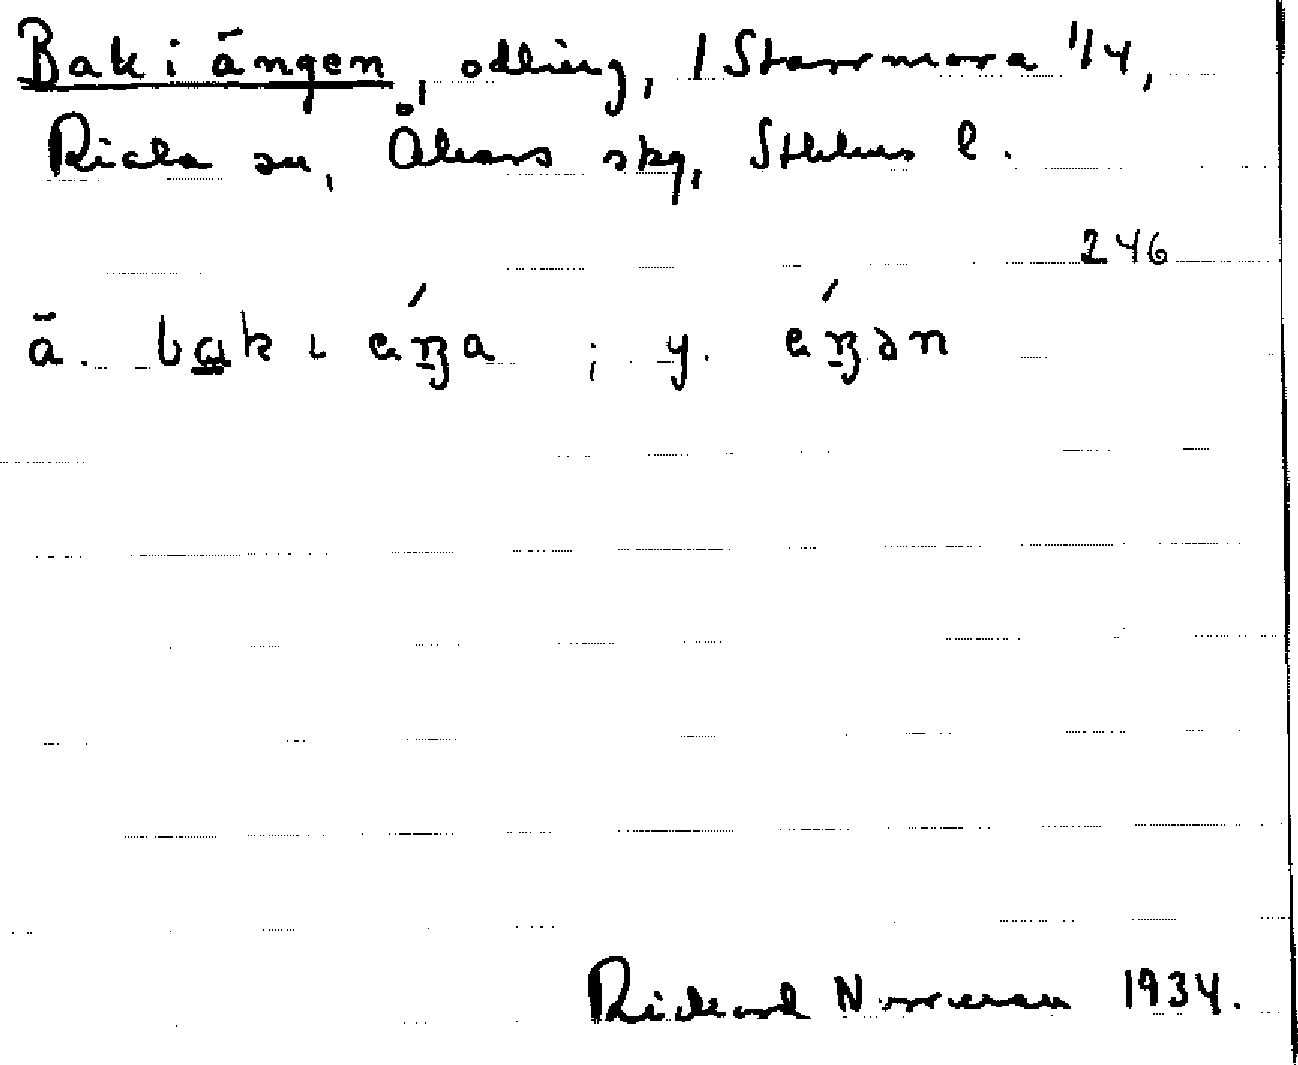 Bak i ängen, odling, 1 Starrmora 1/4,
Riala sn, Åkers skg, Sthlms l.
246
ä. bak ι eŋa ; y. eŋən
Rickard Norrman 1934.